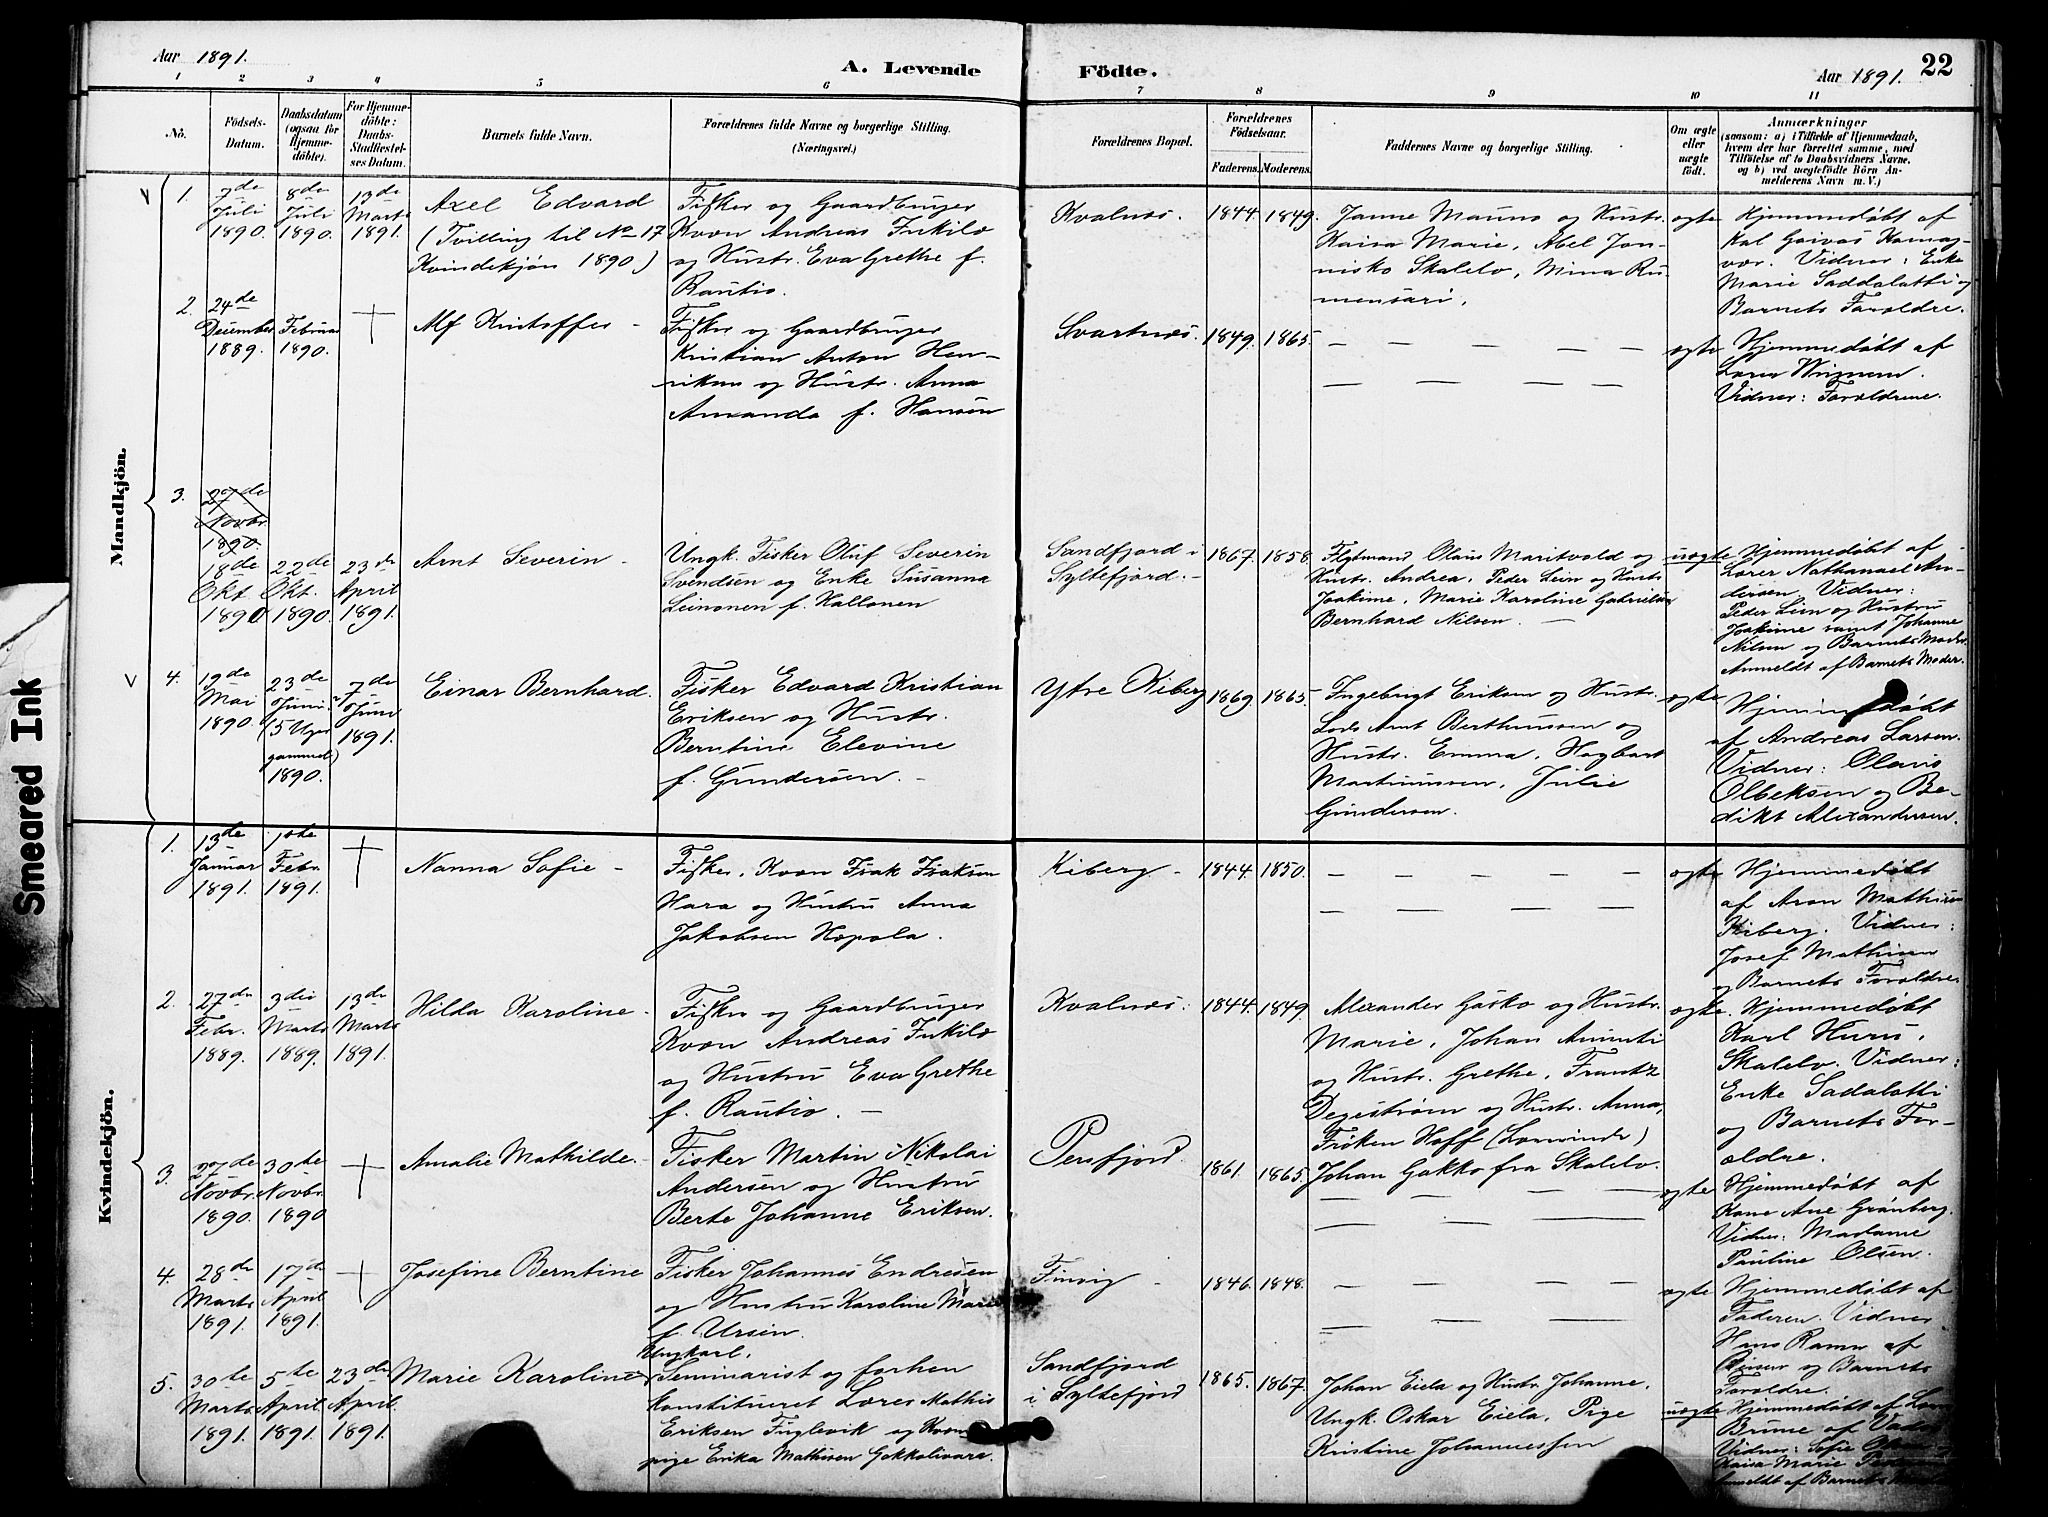 Aar 1891.
A. Levende
Födte.
Aar 1891.
22
1 2 3 4 5 6 7 8 9 10 11
No.
Födsels-
Datum.
Daabsdatum
(ogsaa for
Hjemme-
döbte).
For Hjemme-
döbte:
Daabs-
Stadfæstel-
ses Datum.
Barnets fulde Navn.
Forældrenes fulde Navne og borgerlige Stilling.
(Næringsvei.)
Forældrenes Bopæl.
Forældrenes
Födselsaar.
Faderens.
Moderens.
Faddernes Navne og borgerlige Stilling.
Om ægte
eller
uægte
födt.
Anmærkninger
(saasom: a) i Tilfælde af Hjemmedaab,
hvem der har forrettet samme, med
Tilföielse af to Daabsvidners Navne.
og b) ved uægtefödte Börn An-
melderens Navn m. V.)
Mandkjön.
1.
7de
Juli
1890.
8de
Juli
1890.
13de
Marts
1891.
Axel Edvard
(Tvilling til No 17
Kvindekjön 1890)
Fisker og Gaardbruger
Kvæn Andreas Inkilæ
og Hustr. Eva Grethe f.
Rautio.
Kvalnæs.
1844.
1849.
Janne Mauno og Hustr.
Kaisa Marie, Abel Jon-
nisko Skalelv, Mina Ru-
mensari.
ægte
Hjemmedøbt af
Kal Goivas Komag-
vær. Vidner: Enke
Marie Saddalotti og
Barnets Forældre.
2.
24de
December
1889.
Februar
1890.
Alf Kristoffer -
Fisker og Gaardbruger
Kristian Anton Hen-
riksen og Hustr. Anna
Amanda f. Hansen
Svartnæs.
1849.
1865.
ægte
Hjemmedøbt af
Lærer
Vidner: Forældrene.
3.
27de
Novbr.
1890.
18de
Okt.
1890
22de
Okt.
1890.
23de
April
1891.
Arnt Severin -
Ungk. Fisker Oluf Severin
Svendsen og Enke Susanna
Leinonen f. Kallonen
Sandfjord i
Syltefjord. -
1867.
1858.
Flytmand Olaus Maritvold og
Hustr. Andrea, Peder Lein og Hustr.
Joakime, Marie Karoline Gabrielsen
Bernhard Nilsen. -
uægte
Hjemmedøbt af
Lærer Nathanael An-
dersen. Vidner:
Peder Lein og Hustru
Joakime samt Johanne
Nilsen og Barnets Moder.
Anmeldt af Barnets Moder.
4.
19de
Mai
1890.
23de
Juni
(5 Uger
gammel)
1890.
7de
Juni
1891.
Einar Bernhard.
Fisker Edvard Kristian
Eriksen og Hustr.
Berntine Elevine
f. Gundersen. -
Ytre Kiberg
1869.
1865.
Ingebrigt Eriksen og Hustr.
Arnt Berthussen og
Hustr. Emma, Hagbart
Martinussen, Julie
Gundersen.
ægte
Hjemmedøbt
af Andreas Larsen.
Vidner: Olaus
Olbeksen og Be-
dikt Alexandersen.
Kvindekjön.
1.
13de
Januar
1891.
1ste
Febr.
1891.
Nanna Sofie -
Fisker, Kvæn Isak Isaksen
Hara og Hustru Anna
Jakobsen Hæpola.
Kiberg -
1844.
1850.
ægte
Hjemmedøbt
af Aron Mathisen
Kiberg. Vidner:
Josef Mathisen
og Barnets Forældre
2.
27de
Febr.
1889.
3die
Marts
1889.
13de
Marts
1891.
Hilda Karoline -
Fisker og Gaardbruger
Kvæn Andreas Inkilæ
og Hustru Eva Grethe
f. Rautio. -
Kvalnæs.
1844.
1849.
Alexander Gasko og Hustr.
Marie, Johan Annuti
og Hustr. Grethe, Frantz
Degestrøm og Hustr. Anna,
Frøken Hoff (Lærerinde)
Johan Gakko fra Skalelv.
ægte.
Hjemmedøbt
Karl Huru,
Skalelv. Vidner:
Enke Sadalotti
og Barnets For-
ældre.
3.
27de
Novbr.
1890.
30te
Novbr.
1890
Amalie Mathilde. -
Fisker Martin Nikolai
Andersen og Hustru
Berte Johanne Eriksen.
Persfjord.
1861.
1865.
ægte
Hjemmedøbt af
Kone Ane Grønberg.
Vidner: Madame
Pauline Olsen.
4.
28de
Marts
1891.
17de
April
1891.
Josefine Berntine
Fisker Johannes Endresen
og Hustru Karoline Marie
f. Ursin.
Finvig -
1846.
1848.
ægte
Hjemmedøbt af
Faderen. Vidner
Hans Ramn af
og Barnets
Forældre.
5.
30te
Marts
1891.
5te
April
1891.
23de
April.
1891.
Marie Karoline
Ungkarl,
Seminarist og forhen
konstitueret Lærer Mathis
Eriksen Fuglevik og Kvæn
pige Erika Mathisen Gokkolivara.
Sandfjord
i Syltefjord
1865.
1867.
Johan Eiela og Hustr. Johanne,
Ungk. Oskar Eiela, Pige
Kristine Johannessen
uægte
Hjemmedøbt af
Brune af Vadsø
Vidner: Sofie
Kaisa Marie
Anmeldt af Barnets
Smeared Ink